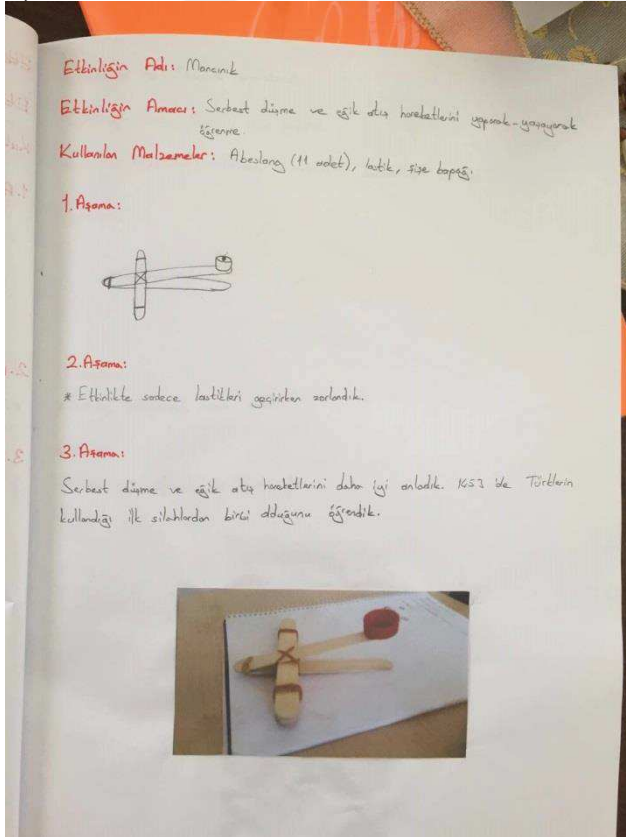 Etkinliğin Adı: Mancınık
Etkinliğin Amacı: Serbest düşme ve eğik atış hareketlerini yaparak-yaşayarak
öğrenme.
Kullanılan Malzemeler: Abeslang (11 adet), lastik, şişe kapağı.
1. Aşama:
2. Aşama:
* Etkinlikte sadece lastikleri geçirirken zorlandık.
3. Aşama:
Serbest düşme ve eğik atış hareketlerini daha iyi anladık. 1453 'de Türklerin
kullandığı ilk silahlardan birisi olduğunu öğrendik.